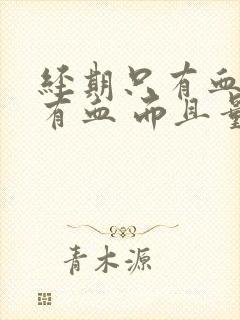 经期只有血
有血 而且量
青木源